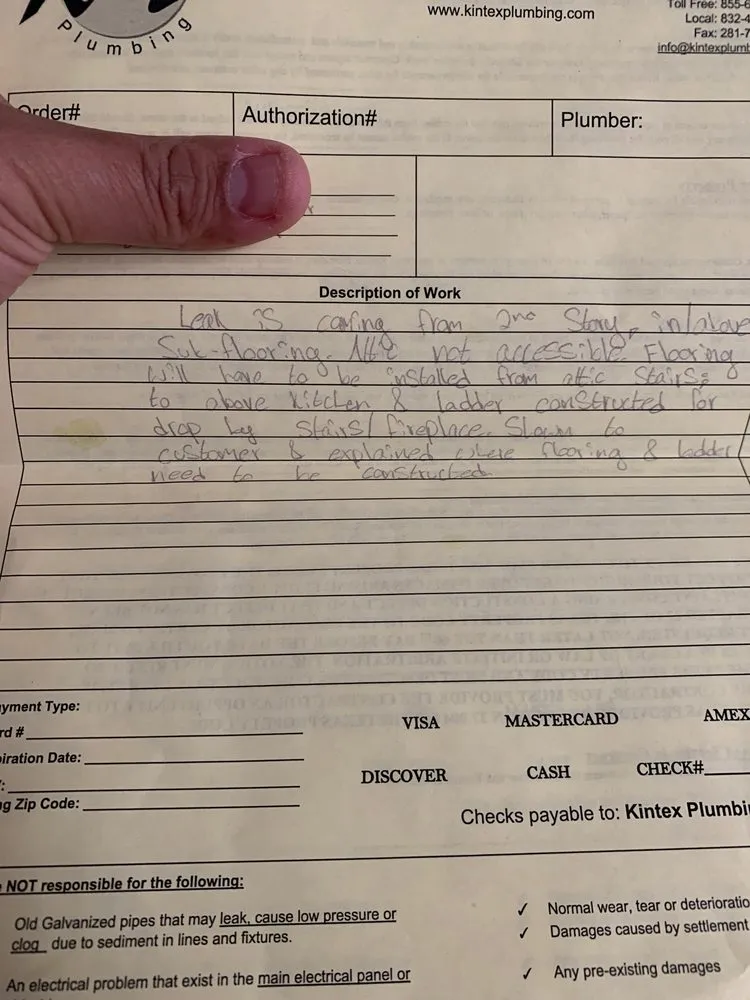 Plumbing
www.kintexplumbing.com
Toll Free: 855-6
Local: 832-4
Fax: 281-7
info@kintexplumb
Order#
Authorization#
Plumber:
Description of Work
Leak is coming from 2nd Story, in/above
Sub-flooring. Attic not accessible. Flooring
will have to be installed from attic Stairs
to above Kitchen & ladder constructed for
drop by Stairs/fireplace. Shown to
customer & explained where flooring & ladder
need to be constructed
yment Type:
rd #
VISA
MASTERCARD
AMEX
iration Date:
DISCOVER
CASH
CHECK#
g Zip Code:
Checks payable to: Kintex Plumbi
NOT responsible for the following:
Old Galvanized pipes that may leak, cause low pressure or
clog due to sediment in lines and fixtures.
An electrical problem that exist in the main electrical panel or
✓ Normal wear, tear or deterioratio
✓ Damages caused by settlement
✓ Any pre-existing damages